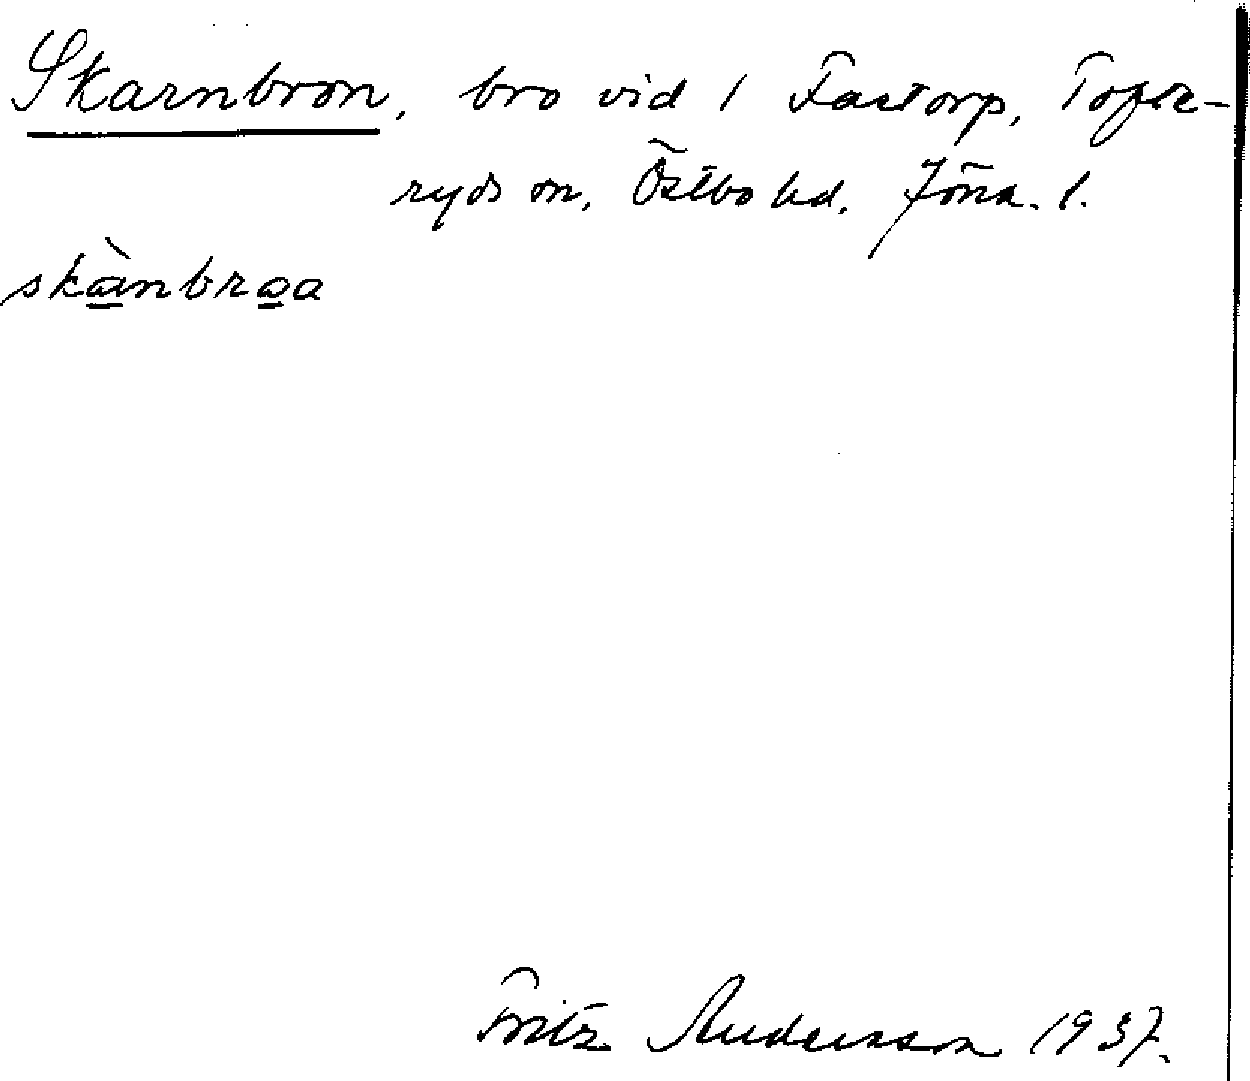 Skarnbron, bro vid 1 Fastorp, Tofte-
ryds sn, Östbo hd. Jönk. l.
skànbroa
Fritz Andersson 1937.